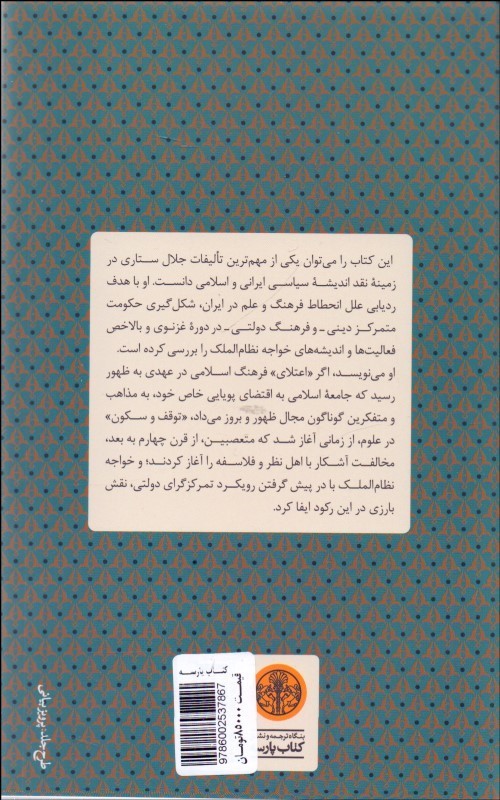 این کتاب را می‌توان یکی از مهم‌ترین تألیفات جلال ستاری در
زمینهٔ نقد اندیشهٔ سیاسی ایرانی و اسلامی دانست. او با هدف
ردیابی علل انحطاط فرهنگ و علم در ایران، شکل‌گیری حکومت
متمرکز دینی ـ و فرهنگ دولتی ـ در دورهٔ غزنوی و بالاخص
فعالیت‌ها و اندیشه‌های خواجه نظام‌الملک را بررسی کرده است.
او می‌نویسد، اگر «اعتلای» فرهنگ اسلامی در عهدی به ظهور
رسید که جامعهٔ اسلامی به اقتضای پویایی خاص خود، به مذاهب
و متفکرین گوناگون مجال ظهور و بروز می‌داد، «توقف و سکون»
در علوم، از زمانی آغاز شد که متعصبین، از قرن چهارم به بعد،
مخالفت آشکار با اهل نظر و فلاسفه را آغاز کردند؛ و خواجه
نظام‌الملک با در پیش گرفتن رویکرد تمرکزگرای دولتی، نقش
بارزی در این رکود ایفا کرد.
کتاب پارسه
9786002537867
قیمت ۸۵۰۰۰تومان
بنگاه ترجمه و نشر
کتاب پارسه
طرح جلد: پرویز بیانی